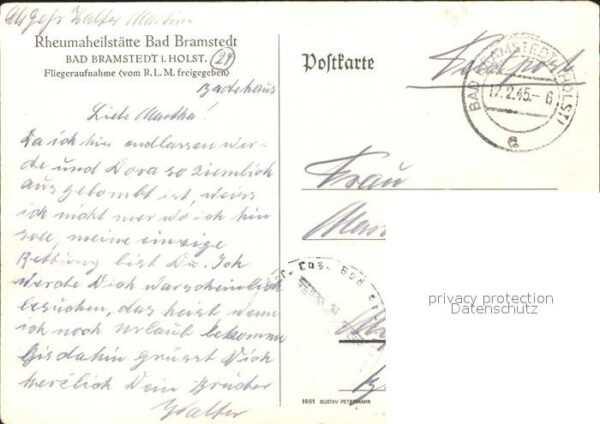 Abs Gefr Walter Martin
Rheumaheilstätte Bad Bramstedt
BAD BRAMSTEDT i. HOLST. (24)
Fliegeraufnahme (vom R.L.M. freigegeben)
Badehaus
Liebe Martha!
Da ich hier endlassen wer-
de und Dora so ziemlich
ausgebombt ist, weiss
ich nicht mer wo ich hin
soll, meine einzige
Rettung bist Du. Ich
werde Dich warscheinlich
besuchen, das heist wenn
ich noch Urlaub bekomme
Bis dahin grüsst Dich
herzlich Dein Brüder
Walter
Postkarte
Feldpost
BAD BRAMSTEDT (HOLST)
17.2.45.- 6
a
Frau
Laz. Bad
privacy protection
Datenschutz
1661 GUSTAV PETERMANN